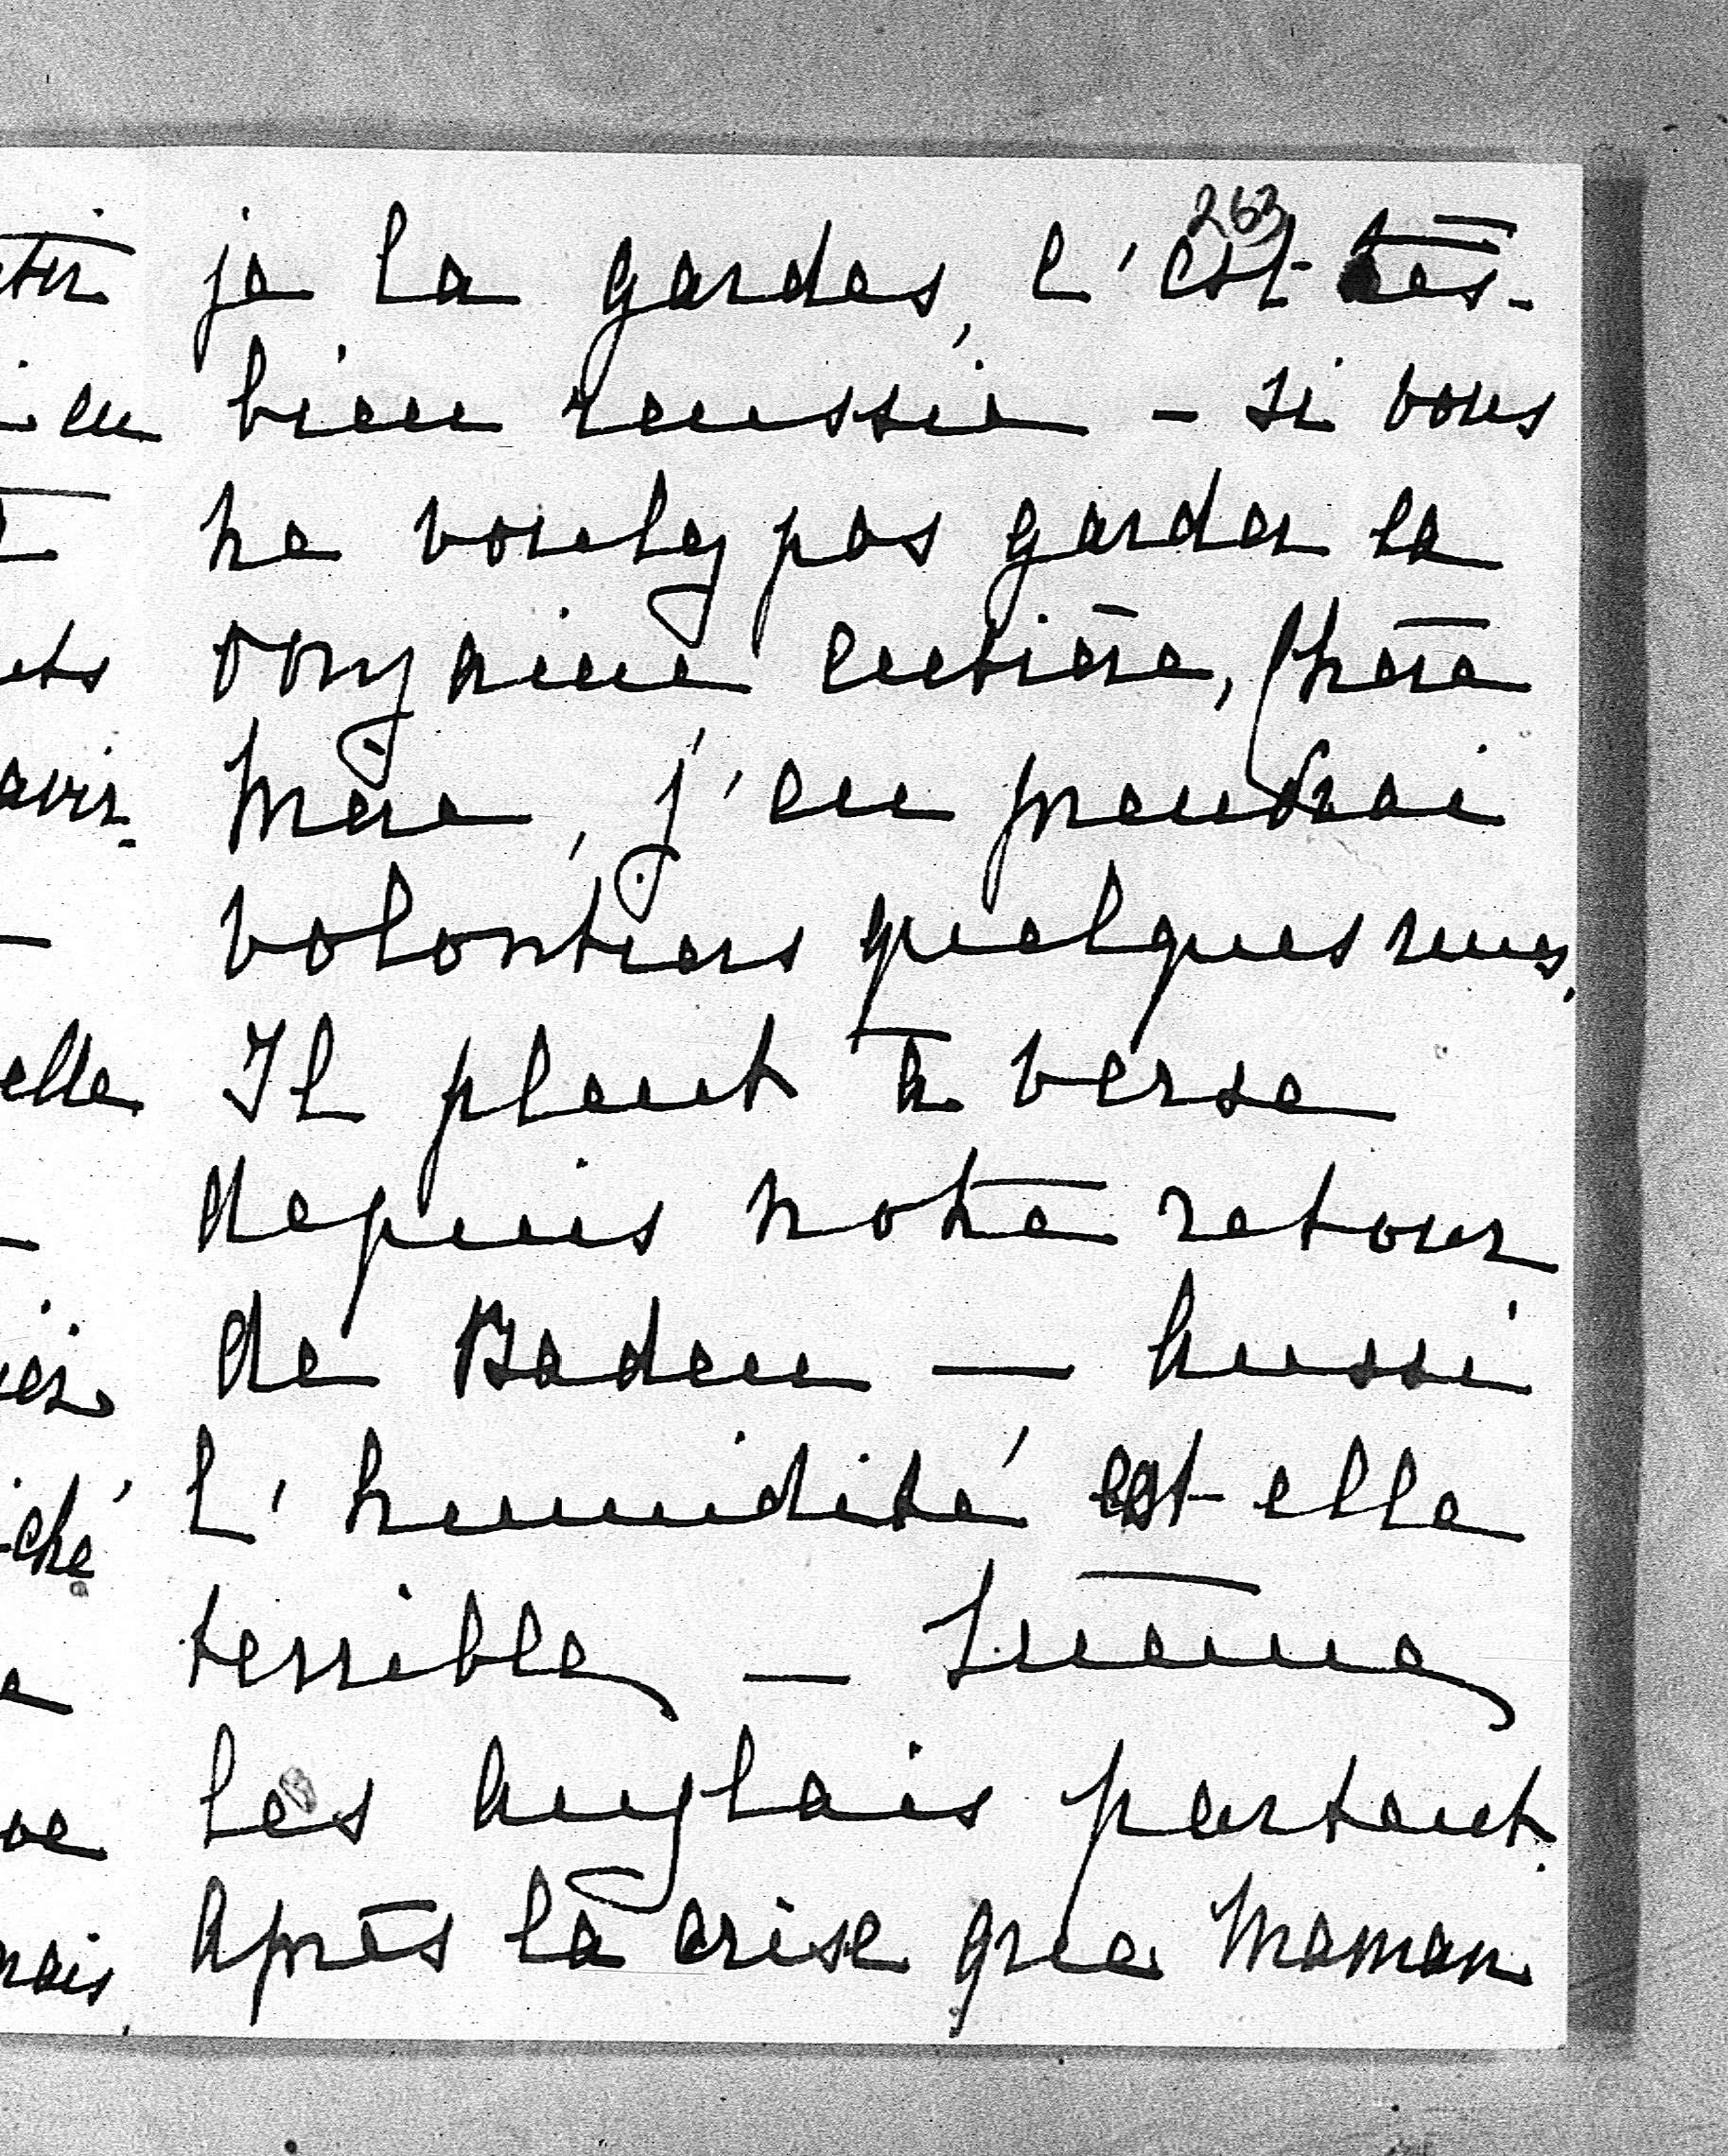 263
je la gardes, c'est très-
bien reussie - si vous
ne voulez pas garder la
douzaine entière, Chère
Mère, j'en prendrai
volontiers quelques unes,
Il pleut à verse
depuis notre retour
de Baden — Aussi
l'humidité est elle
terrible — Même
les Anglais partent.
Après la crise que Maman